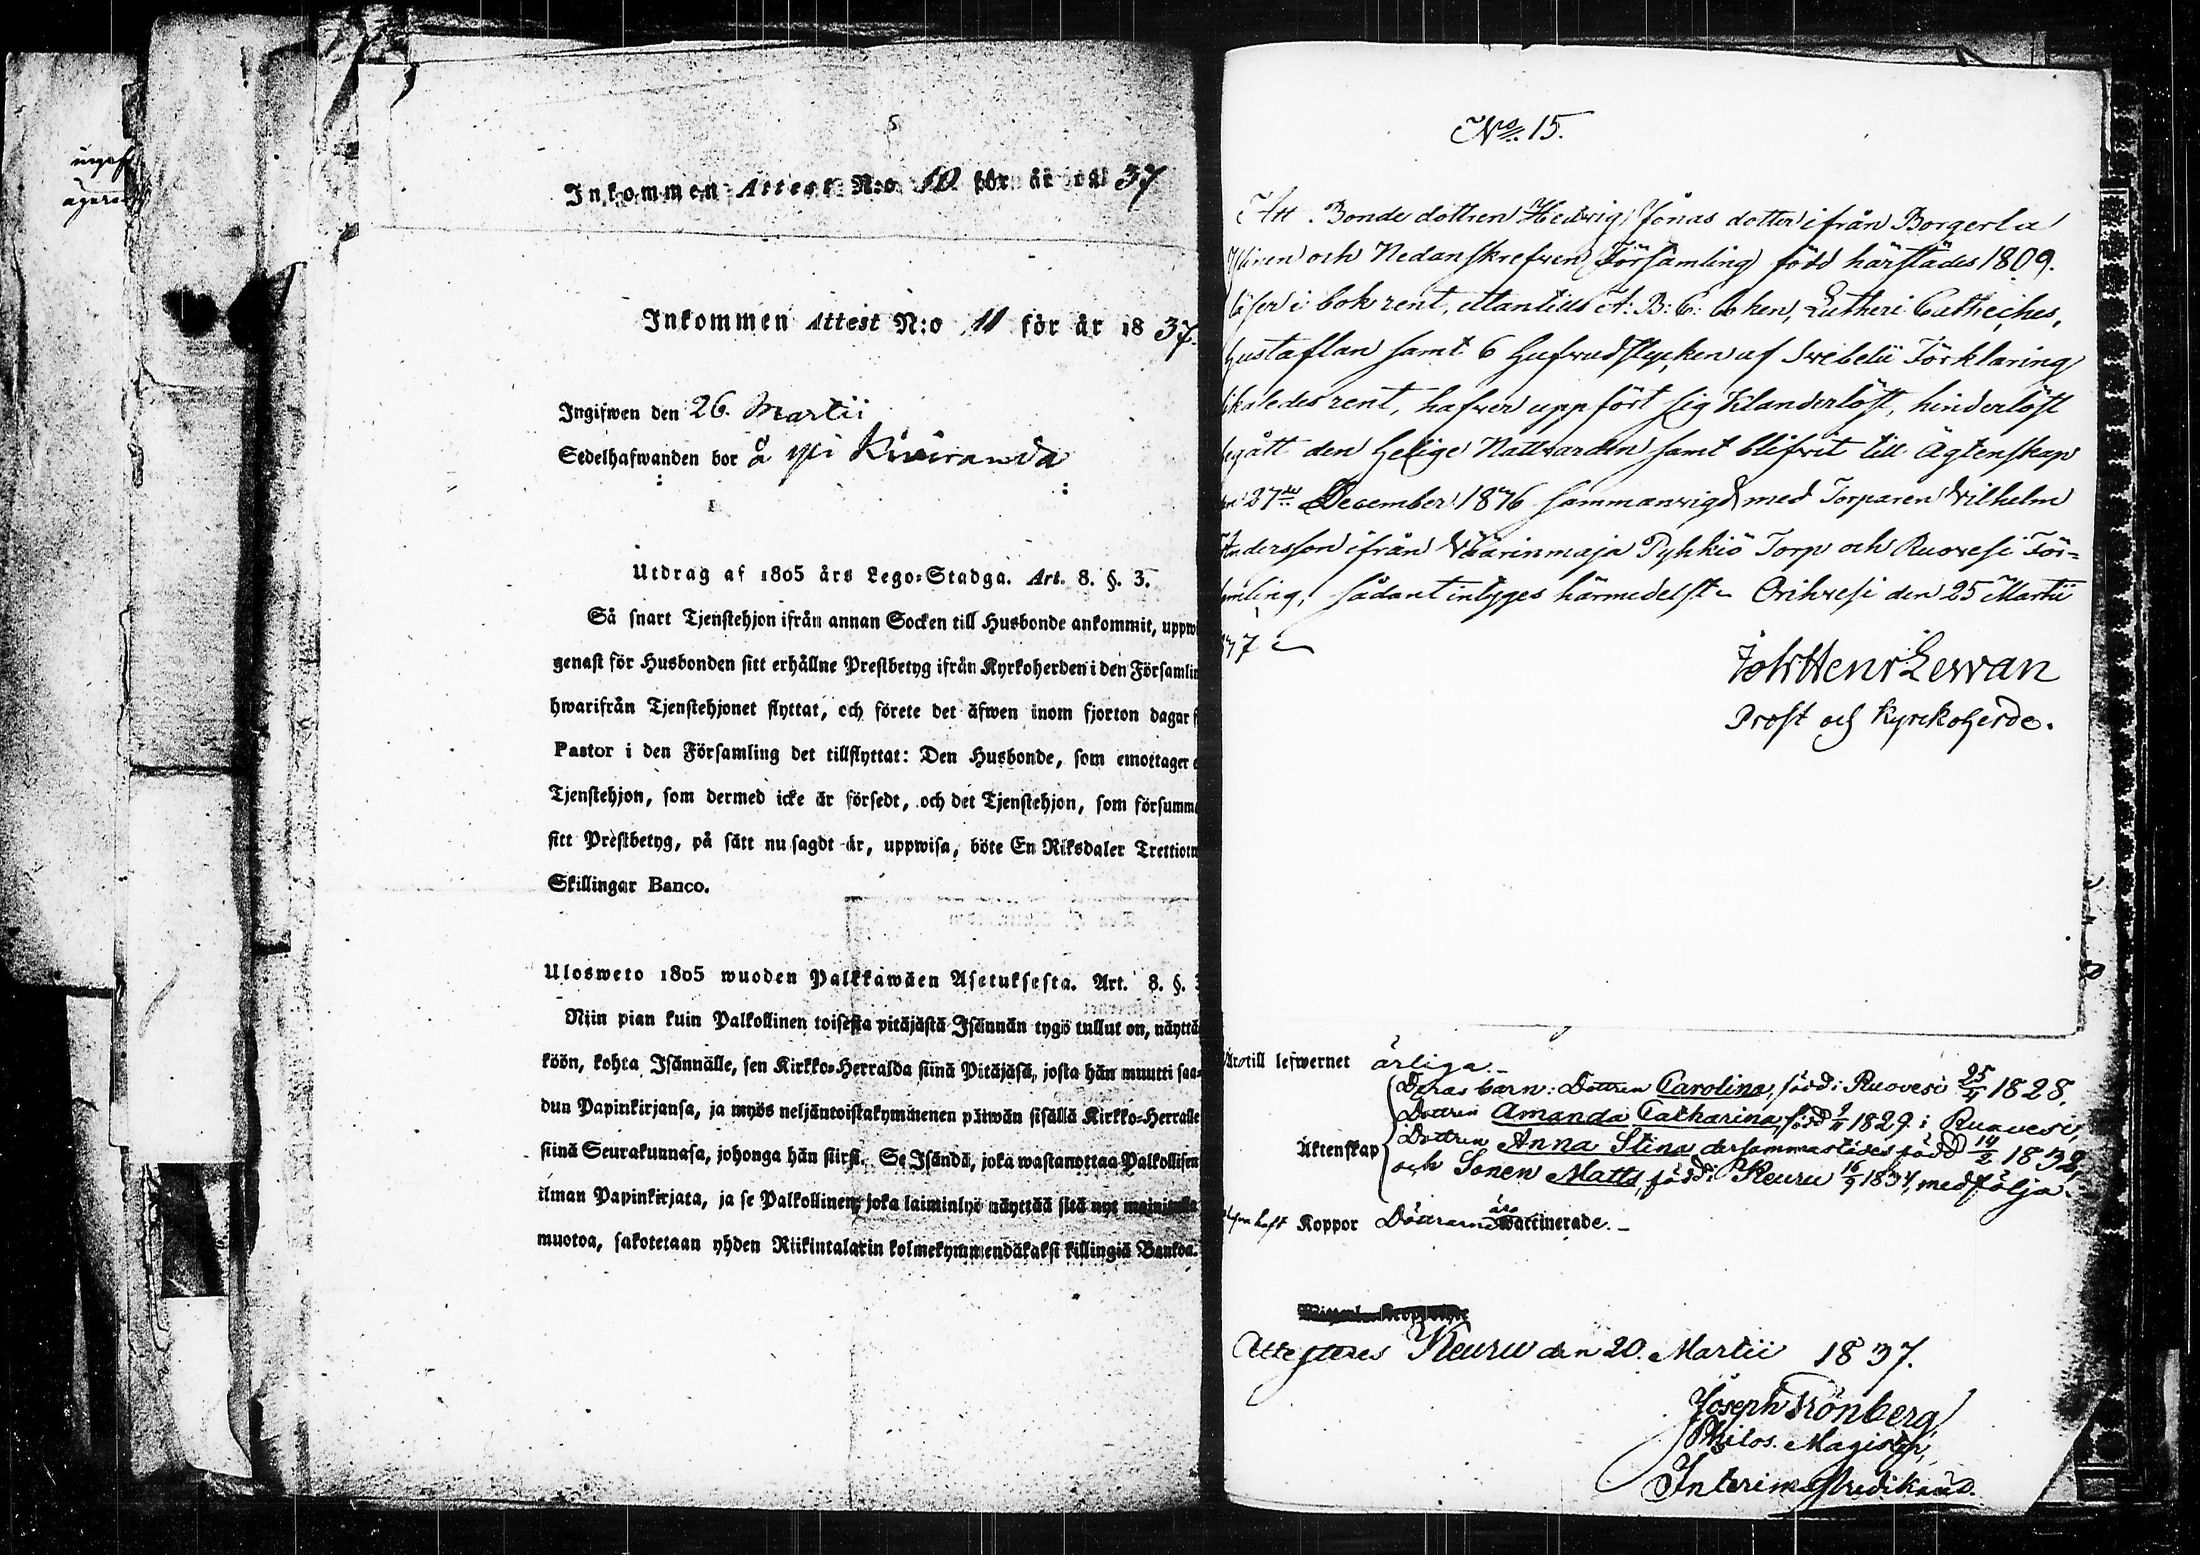 ägare
Inkommen Attest N:o 10 för år 18 37
Inkommen Attest N:o 11 för år 18 37.
Ingifwen den 26. Martii
Sedelhafwanden bor å
Utdrag af 1805 års Lego-Stadga. Art. 8. §. 3.
Så snart Tjenstehjon ifrån annan Socken till Husbonde ankommit, uppwi
genast för Husbonden sitt erhållne Prestbetyg ifrån Kyrkoherden i den Församlin
hwarifrån Tjenstehjonet flyttat, och förete det äfwen inom fjorton dagar f
Pastor i den Församling det tillflyttat: Den Husbonde, som emottager e
Tjenstehjon, som dermed icke är försedt, och det Tjenstehjon, som försumma
sitt Prestbetyg, på sätt nu sagdt är, uppwisa, böte En Riksdaler Trettiotw
Skillingar Banco.
Ulosweto 1805 wuoden Palkkawäen Asetuksesta. Art. 8. §. 3
Niin pian kuin Palkollinen toisesta pitäjästä Isännän tygö tullut on, näyttä
köön, kohta Isännälle, sen Kirkko-Herralda siinä Pitäjäsä, josta hän muutti saa-
dun Papinkirjansa, ja myös neljäntoistakymmenen päiwän sisällä Kirkko-Herralle
siinä Seurakunnasa, johonga hän siirsi. Se Isändä, joka wastanottaa Palkollisen
ilman Papinkirjata, ja se Palkollinen, joka laiminlyö näyttää sitä nyt mainitulla
muotoa, sakotetaan yhden Riikintalarin kolmekymmendäkaksi killingiä Bankoa.
No. 15.
Att Bonde dottren Hedvig Jonas dotter ifrån Borgerla
och Nedanskrefven Församling född härstädes 1809.
läser i bok rent, utantill A: B: C: boken, Lutheri Catheches,
Hustaflan samt 6 Hufvudstycken af Svebelii Förklaring
likaledes rent, hafver uppfört sig Klanderlöst, hinderlöst
begått den Helige Nattvarden samt blifvit till Ägtenskap
den 27de December 1836 sammanvigd med Torparen Vilhelm
Andersson ifrån Väärinmaja Pykkiö Torp och Ruovesi För-
samling, sådant intyges härmedelst. Orihvesi den 25 Martii
37
Joh Henr Lewan
Prost och Kyrkoherde.
Äro till lefwernet ärliga.
Deras barn: Dottren Carolina, född i Ruovesi 25/4 1828.
Dottren Amanda Catharina, född 1829 i Ruovesi,
Äktenskap Dottren Anna Stina dersammastädes född 14/2 1832,
och Sonen Matts, född i Keuru 16/9 1834, medfölja.
haft Koppor Döttrarne äro vaccinerade.
Attesteres Keuru den 20. Martii 1837.
Joseph Frönberg
Philos. Magister,
Interims Predikand.